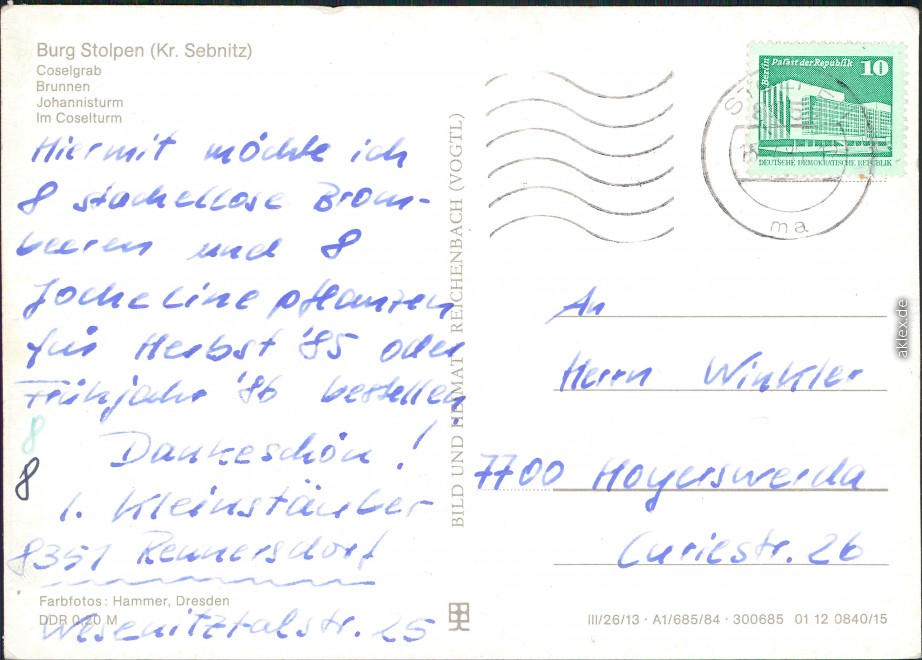 Burg Stolpen (Kr. Sebnitz)
Coselgrab
Brunnen
Johannisturm
Im Coselturm
Hiermit möchte ich
8 stachellose Brom-
beeren und 8
Jocheline pflanzen
für Herbst '85 oder
Frühjahr '86 bestellen.
Dankeschön!
I. Kleinstäuber
8351 Rennersdorf
Wesenitztalstr. 25
8
8
Farbfotos: Hammer, Dresden
DDR 0,20 M
BILD UND HEIMAT REICHENBACH (VOGTL)
Berlin Palast der Republik 10
DEUTSCHE DEMOKRATISCHE REPUBLIK
ma
An
Herrn Winkler
7700 Hoyerswerda
Curiestr. 26
III/26/13 · A1/685/84 · 300685 01 12 0840/15
aklex.de